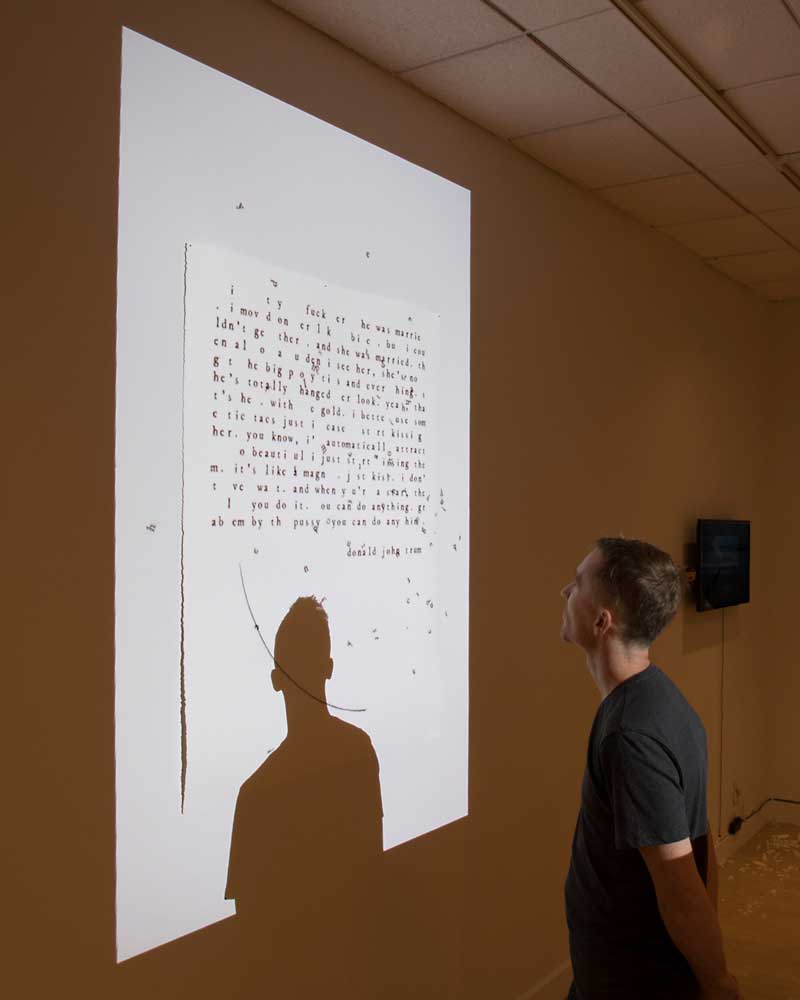 i ty fuck er he was marrie
. i mov d on er l k bi c . bu i cou
ldn't ge ther . and she was married. th
en al o a u den i see her, she's no
g t he big p o y ti s and ever hing. s
he's totally hanged er look. yeah tha
t's he . with e gold. i bette use som
e tic tacs just i case st rt kissi g
her. you know, i' automaticall attract
o beauti ul i just st rt issing the
m. it's like a magn . j st kiss. i don'
t ve wa t. and when y u'r a star, the
l you do it. ou can do anything. gr
ab em by th pussy you can do any hin .
donald john trum